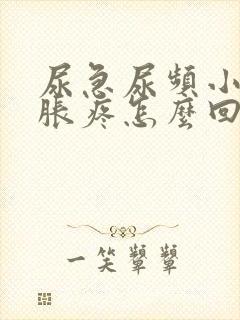 尿急尿頻小
脹疼怎麼回
一笑顰顰